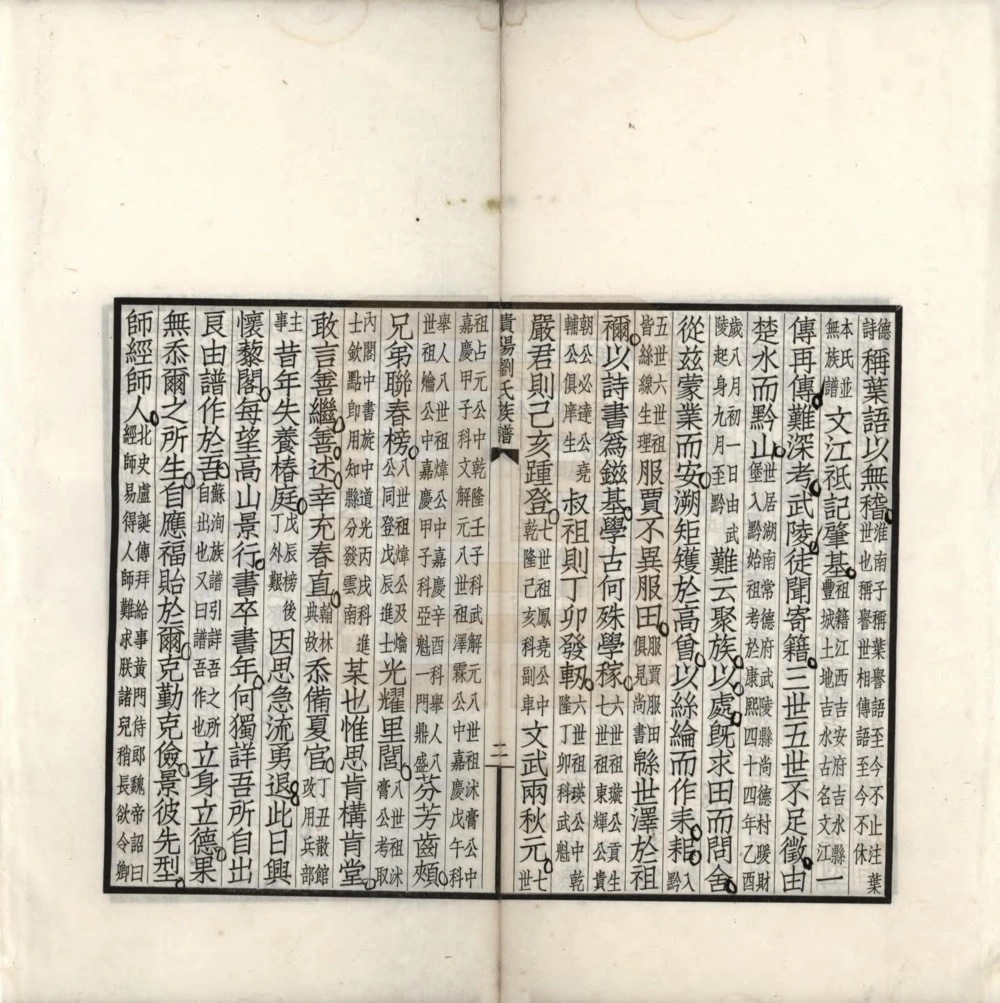 德詩稱葉語以無稽淮南子稱葉譽語至今不止注葉世也稱譽世相傳語至今不休
本氏並無族譜文江祇記肇基祖籍江西吉安府吉水縣豐城土地吉水古名文江一
傳再傳難深考武陵徒聞寄籍三世五世不足徵由
楚水而黔山世居湖南常德府武陵縣尚德村陵財堡入黔始祖考於康熙四十四年乙酉
歲八月初一日由武陵起身九月至黔難云聚族以處既求田而問舍
從茲蒙業而安溯矩矱於高曾以絲綸而作耒耜入黔
五世六世祖皆絲線生理服賈不異服田服賈服田俱見尚書緜世澤於祖
禰以詩書爲鎡基學古何殊學稼六世祖璇公貢生七世祖東輝公貴
朝公必達公堯輔公俱庠生叔祖則丁卯發軔六世祖瑛公中乾隆丁卯科武魁
嚴君則己亥踵登七世祖鳳堯公中乾隆己亥科副車文武兩秋元七世
貴陽劉氏族譜
二
祖占元公中乾隆壬子科武解元八世祖沐膏公中嘉慶甲子科文解元八世祖澤霖公中嘉慶戊午科
舉人八世祖煒公中嘉慶辛酉科舉人八世祖爚公中嘉慶甲子科亞魁一門鼎盛芬芳齒頰
兄弟聯春榜八世祖煒公及爚公同登戊辰進士光耀里閭八世祖沐膏公考取
內閣中書族中道光丙戌科進士欽點即用知縣分發雲南某也惟思肯構肯堂
敢言善繼善述幸充春直翰林典故忝備夏官丁丑散館改用兵部
主事昔年失養椿庭戊辰榜後丁外艱因思急流勇退此日興
懷藜閣每望高山景行書卒書年何獨詳吾所自出
良由譜作於吾蘇洵族譜引詳吾之所自出也又曰譜吾作也立身立德果
無忝爾之所生自應福貽於爾克勤克儉景彼先型
師經師人北史盧誕傳拜給事黃門侍郎魏帝詔曰經師易得人師難求朕諸兒稍長欲令卿